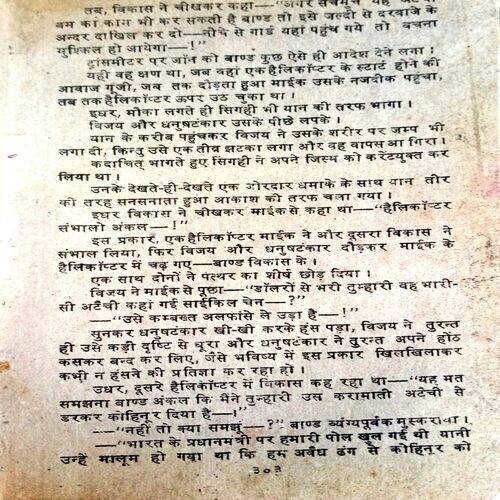 तब, विकास ने चीखकर कहा—"अगर सचमुच यह अटैची
बम का काम भी कर सकती है बाण्ड तो इसे जल्दी से दरवाजे के
अन्दर दाखिल कर दो—नीचे से गार्ड यहां पहुंच गये तो बचना
मुश्किल हो जायेगा—!"
ट्रांसमीटर पर जॉन को बाण्ड कुछ ऐसे ही आदेश देने लगा।
यही वह क्षण था, जब वहां एक हैलिकॉप्टर के स्टार्ट होने की
आवाज गूंजी, जब तक दौड़ता हुआ माईक उसके नजदीक पहुंचा,
तब तक हैलिकॉप्टर ऊपर उठ चुका था।
इधर, मौका लगते ही सिंगही भी यान की तरफ भागा।
विजय और धनुषटंकार उसके पीछे लपके।
यान के करीब पहुंचकर विजय ने उसके शरीर पर जम्प भी
लगा दी, किन्तु उसे एक तीव्र झटका लगा और वह वापस आ गिरा।
कदाचित् भागते हुए सिंगही ने अपने जिस्म को करेंटयुक्त कर
लिया था।
उनके देखते-ही-देखते एक जोरदार धमाके के साथ यान तीर
की तरह सनसनाता हुआ आकाश की तरफ चला गया।
इधर विकास ने चीखकर माईक से कहा था—"हैलिकॉप्टर
संभालो अंकल—!"
इस प्रकार, एक हैलिकॉप्टर माईक ने और दूसरा विकास ने
संभाल लिया, फिर विजय और धनुषटंकार दौड़कर माईक के
हैलिकॉप्टर में चढ़ गए—बाण्ड विकास के।
एक साथ दोनों ने पत्थर का शीर्ष छोड़ दिया।
विजय ने माईक से पूछा—"डॉलरों से भरी तुम्हारी वह भारी-
सी अटैची कहां गई साईकिल चेन—?"
—"उसे कम्बख्त अलफांसे ले उड़ा है—!"
सुनकर धनुषटंकार खी-खी करके हंस पड़ा, विजय ने तुरन्त
ही उसे कड़ी दृष्टि से घूरा और धनुषटंकार ने तुरन्त अपने होंठ
कसकर बन्द कर लिए, जैसे भविष्य में इस प्रकार खिलखिलाकर
कभी न हंसने की प्रतिज्ञा कर रहा हो।
उधर, दूसरे हैलिकॉप्टर में विकास कह रहा था—"यह मत
समझना बाण्ड अंकल कि मैंने तुम्हारी उस करामाती अटैची से
डरकर कोहिनूर दिया है—।"
—"नहीं तो क्या समझूं—?" बाण्ड व्यंग्यपूर्वक मुस्कराया।
—"भारत के प्रधानमन्त्री पर हमारी पोल खुल गई थी यानी
उन्हें मालूम हो गया था कि हम अवैध ढंग से कोहिनूर को
303